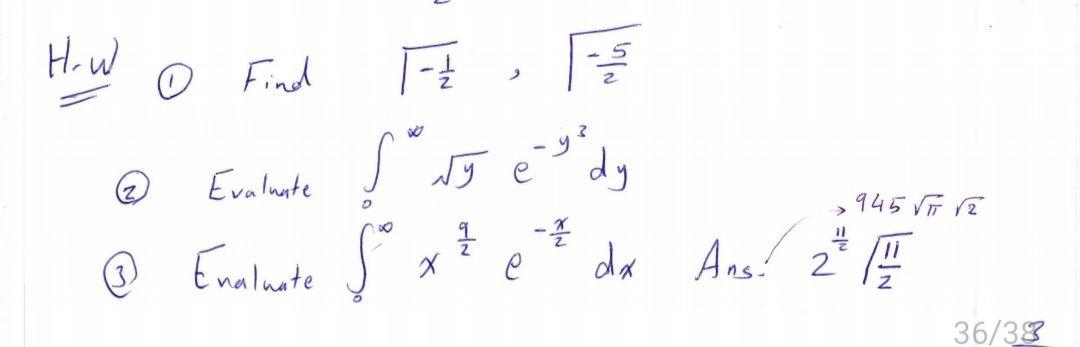 H.W ① Find Γ-1/2 , Γ-5/2
② Evaluate ∫₀^∞ √y e^{-y³} dy
→ 945 √π √2
③ Evaluate ∫₀^∞ x^{9/2} e^{-x/2} dx Ans. 2^{11/2} Γ11/2
36/38
3